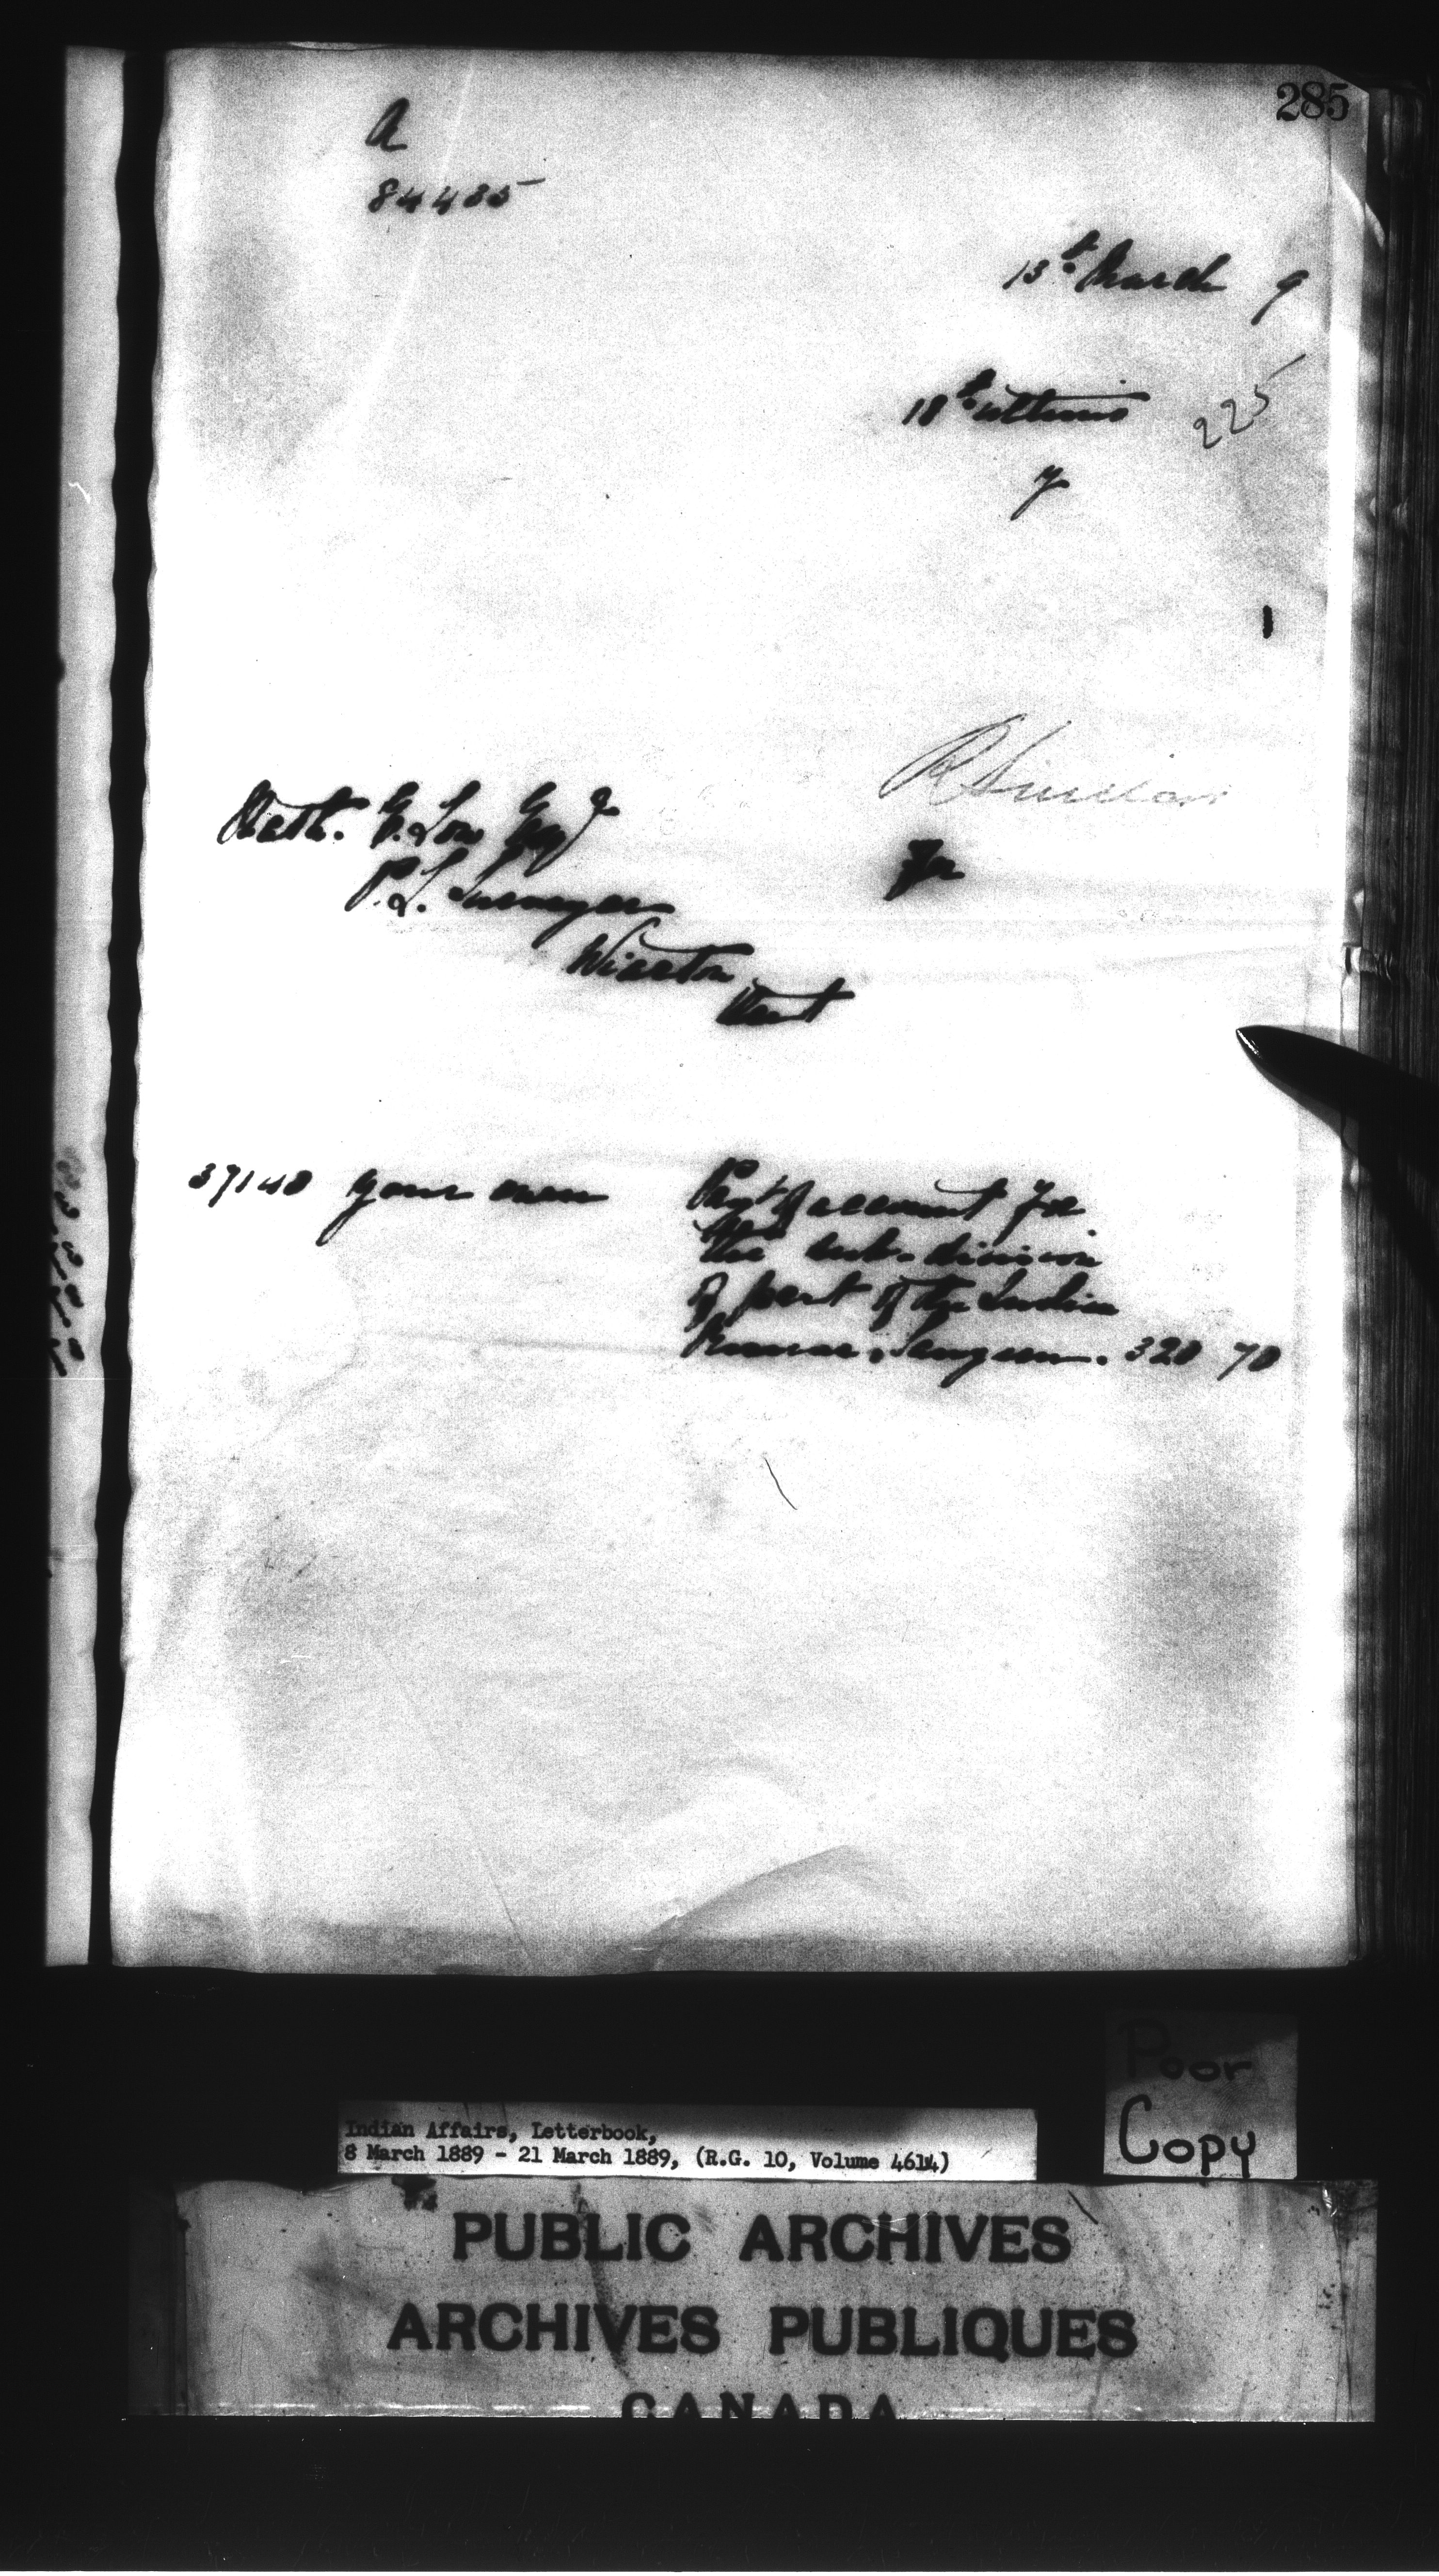 285
A
84435
13th March 9
18th ultimo
225
1
R Sinclair
for
Nath. G. Low Esqr
P.L. Surveyor
Wiarton
Ont
37140 your own Payt of account for
the sub-division
of part of the Indian
Reserve, Saugeen. 320 70
Poor
Copy
Indian Affairs, Letterbook,
8 March 1889 - 21 March 1889, (R.G. 10, Volume 4614)
PUBLIC ARCHIVES
ARCHIVES PUBLIQUES
CANADA